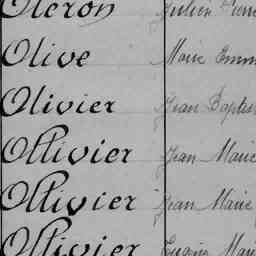 Oleron Julien Pierre
Olive Marie Emm
Olivier Jean Baptis
Ollivier Jean Marie
Ollivier Jean Marie
Ollivier Eugène Mari